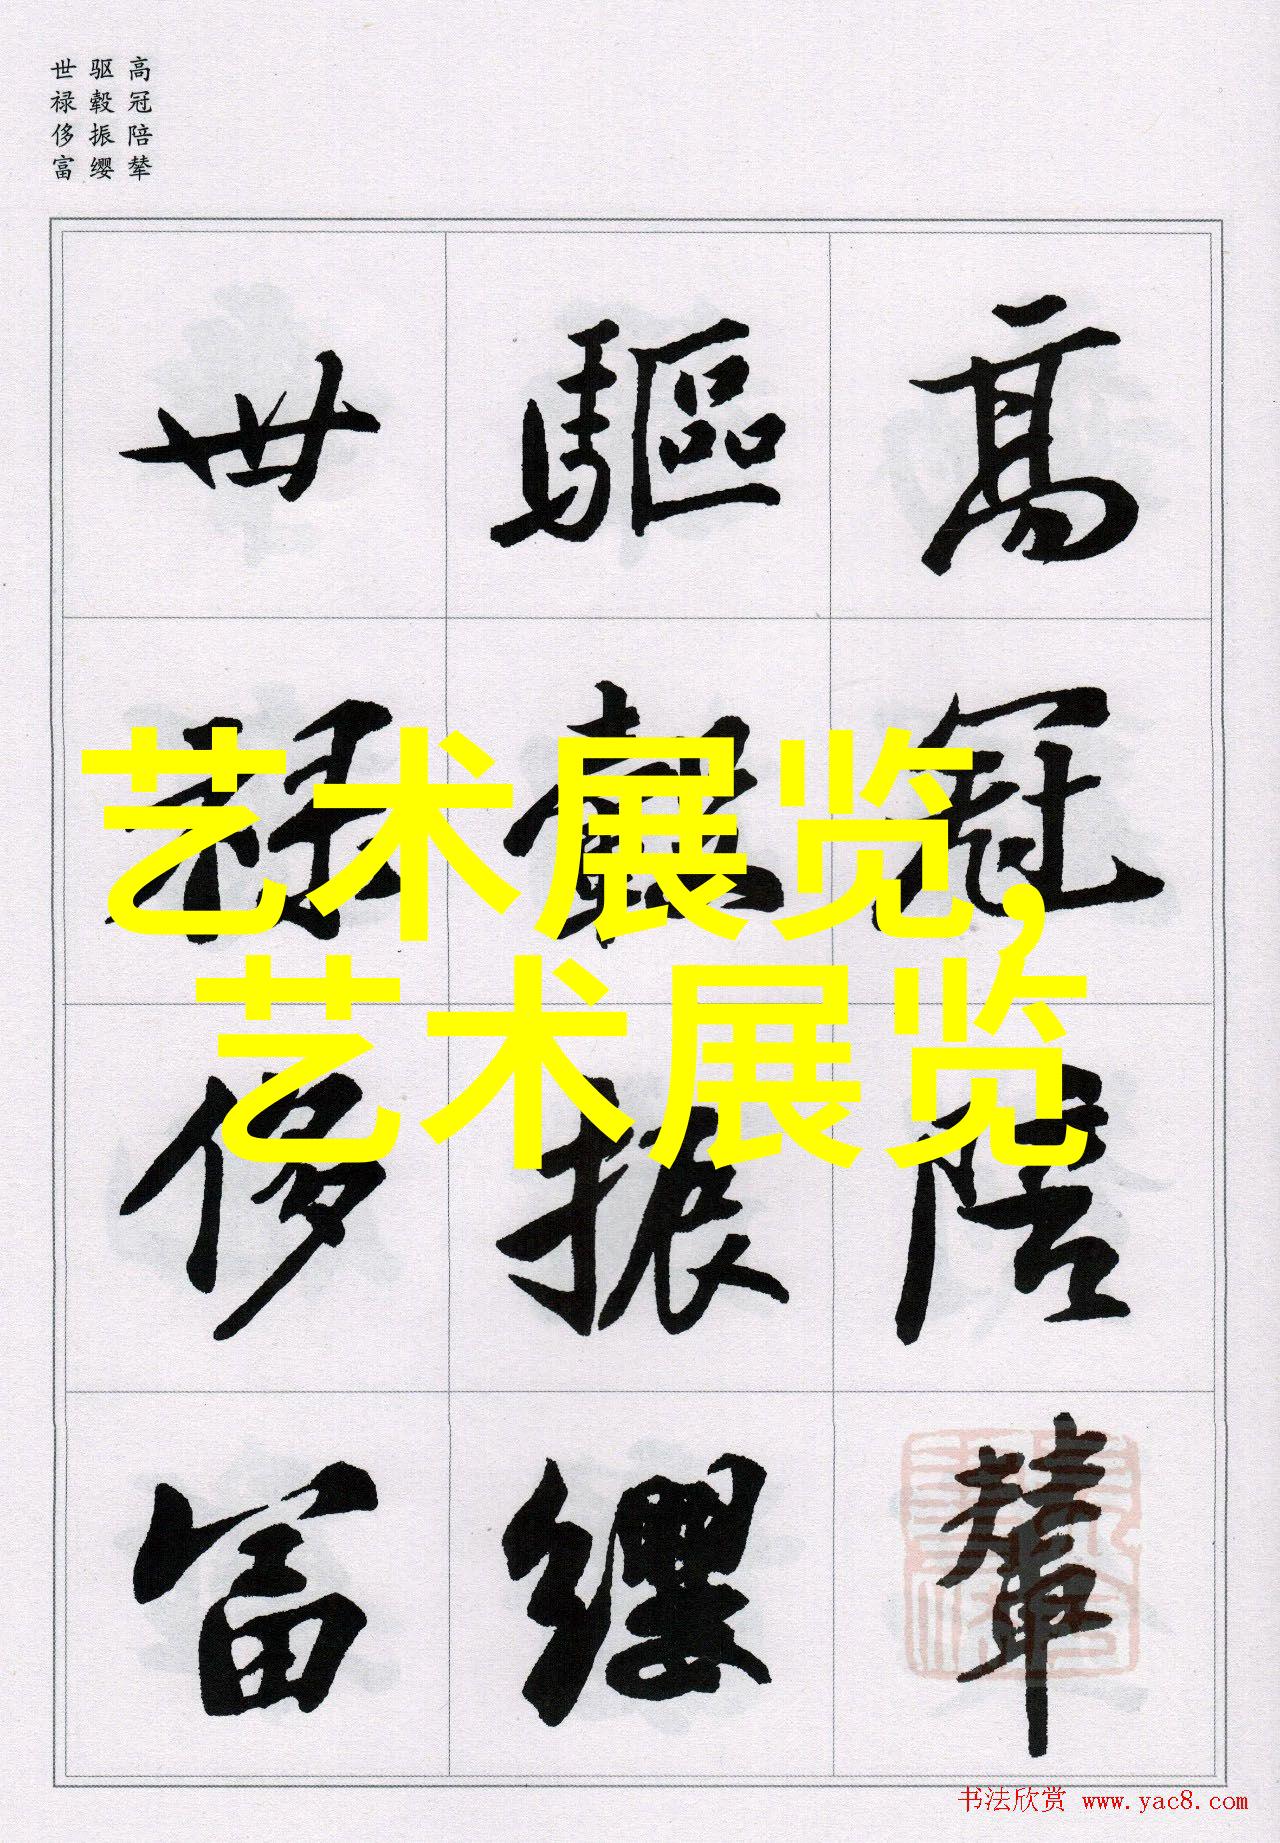 高冠陪辇
驱毂振缨
世禄侈富
高冠陪輦
驅轂振纓
世禄侈富
艺术展览,
艺术展览
书法欣赏 www.yac8.com